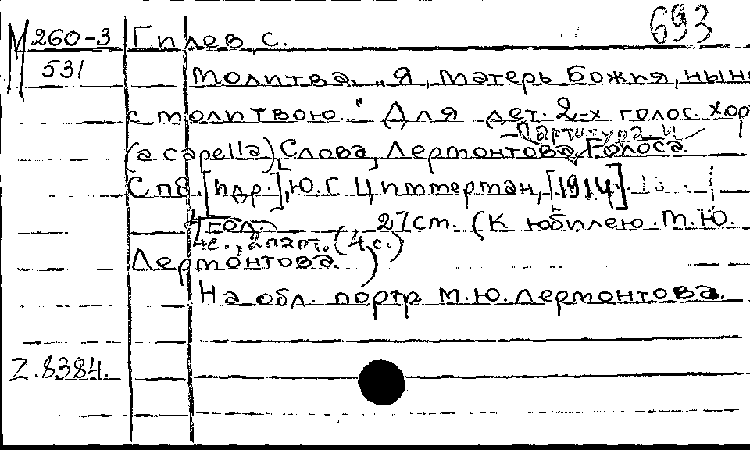 693
М 260-3 Гилев, С.
531 Молитва. „Я, матерь Божия, ныне
с молитвою." Для дет. 2-х голос. хор
Партитура и
(a capella) Слова, Лермонтова, Голоса
СПб. [пдр.], Ю.Г. Циммерман, [1914].
27 cm. (К юбилею. М.Ю.
4с., 2 парт. (4 с.)
Лермонтова.)
На обл. портр М.Ю. Лермонтова.
Z.8384.